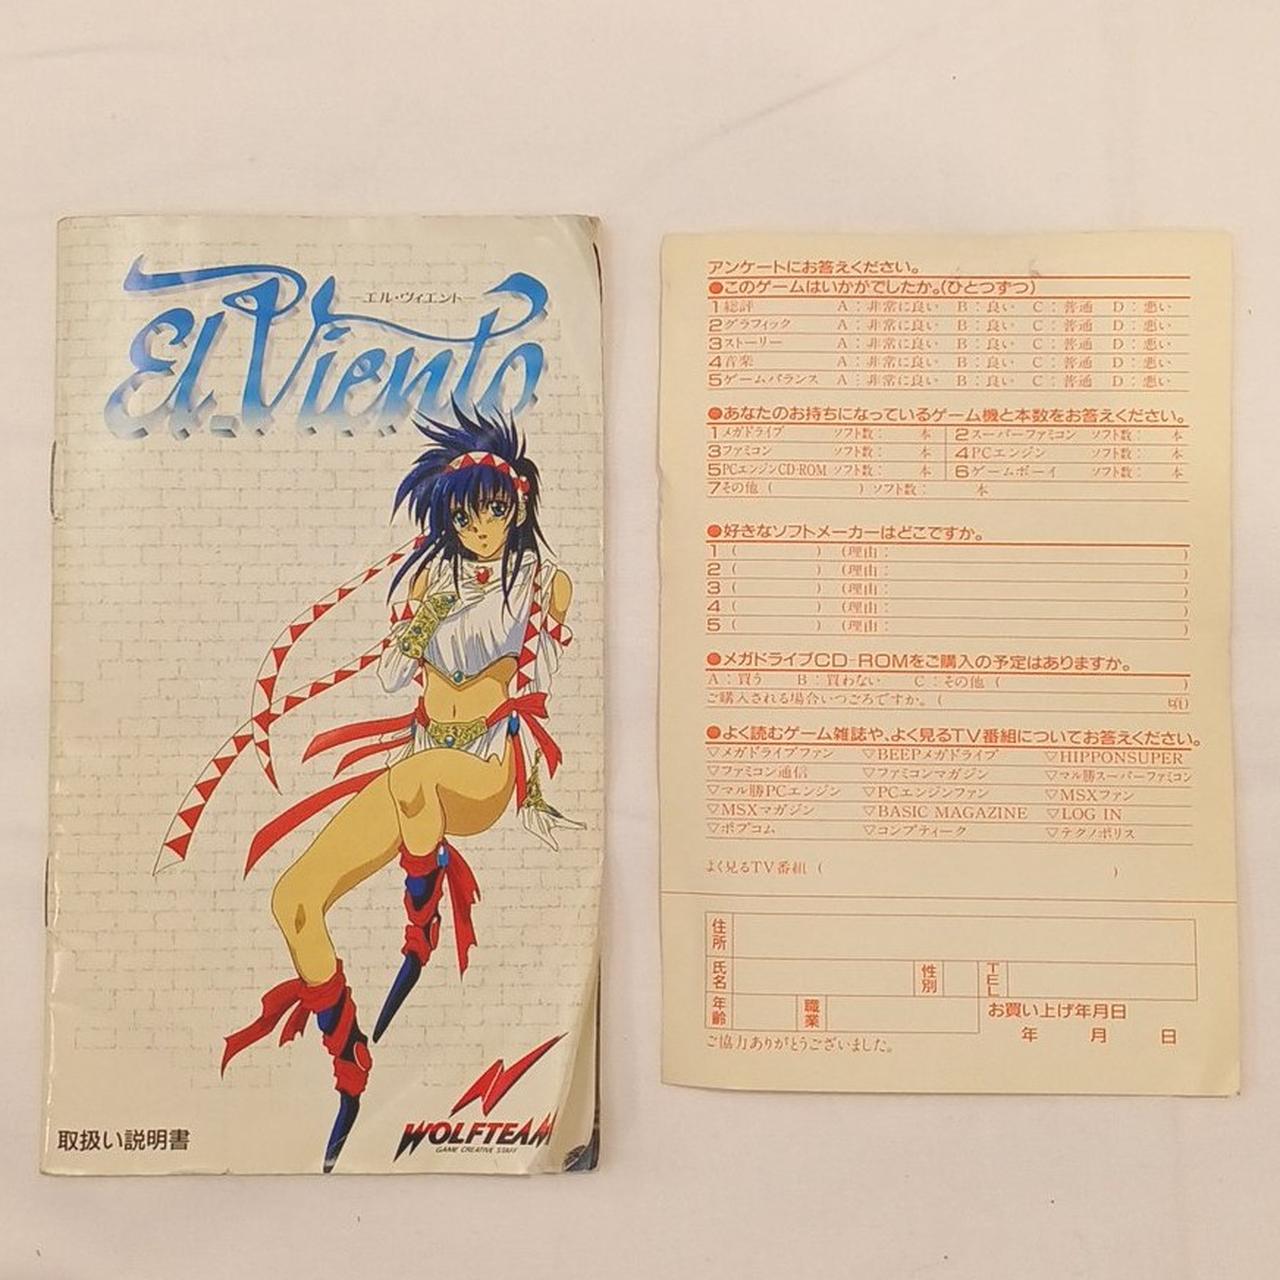 El Viento
—エル・ヴィエント—
取扱い説明書
WOLFTEAM
GAME CREATIVE STAFF
アンケートにお答えください。
●このゲームはいかがでしたか。(ひとつずつ)
1 総評 A：非常に良い B：良い C：普通 D：悪い
2 グラフィック A：非常に良い B：良い C：普通 D：悪い
3 ストーリー A：非常に良い B：良い C：普通 D：悪い
4 音楽 A：非常に良い B：良い C：普通 D：悪い
5 ゲームバランス A：非常に良い B：良い C：普通 D：悪い
●あなたのお持ちになっているゲーム機と本数をお答えください。
1 メガドライブ ソフト数： 本 2 スーパーファミコン ソフト数： 本
3 ファミコン ソフト数： 本 4 PCエンジン ソフト数： 本
5 PCエンジンCD-ROM ソフト数： 本 6 ゲームボーイ ソフト数： 本
7 その他 ( ) ソフト数： 本
●好きなソフトメーカーはどこですか。
1 ( ) (理由： )
2 ( ) (理由： )
3 ( ) (理由： )
4 ( ) (理由： )
5 ( ) (理由： )
●メガドライブCD-ROMをご購入の予定はありますか。
A：買う B：買わない C：その他 ( )
ご購入される場合いつごろですか。( 頃)
●よく読むゲーム雑誌や、よく見るTV番組についてお答えください。
▽メガドライブファン ▽BEEPメガドライブ ▽HIPPONSUPER
▽ファミコン通信 ▽ファミコンマガジン ▽マル勝スーパーファミコン
▽マル勝PCエンジン ▽PCエンジンファン ▽MSXファン
▽MSXマガジン ▽BASIC MAGAZINE ▽LOG IN
▽ポプコム ▽コンプティーク ▽テクノポリス
よく見るTV番組 ( )
住所
氏名 性別 TEL
年齢 職業 お買い上げ年月日
年 月 日
ご協力ありがとうございました。